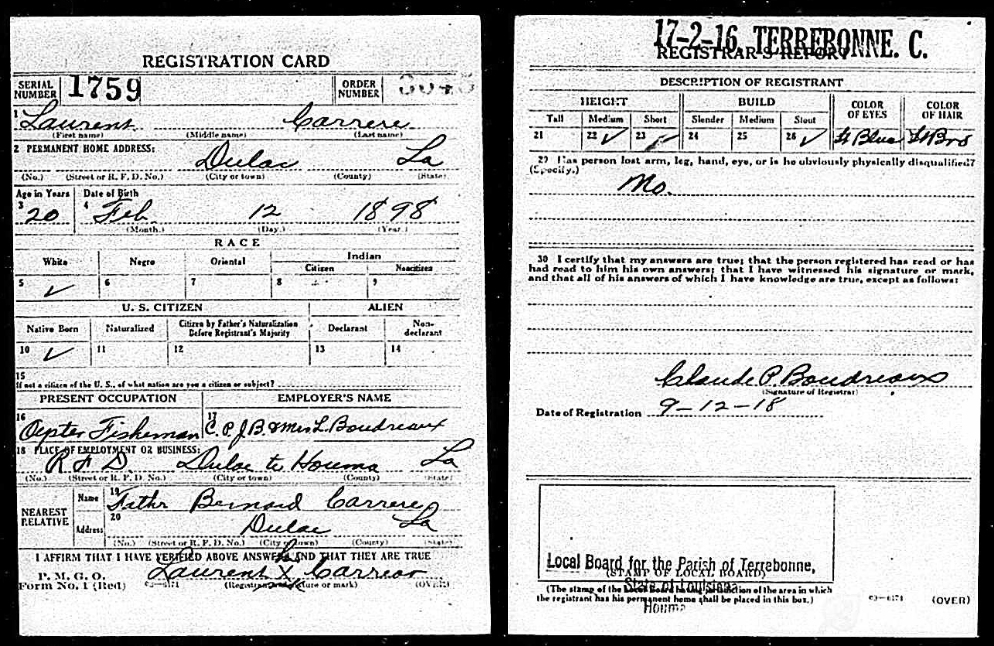 REGISTRATION CARD
SERIAL NUMBER 1759 ORDER NUMBER
1 Laurent Carrere
(First name) (Middle name) (Last name)
2 PERMANENT HOME ADDRESS:
Dulac La
(No.) (Street or R. F. D. No.) (City or town) (County) (State)
Age in Years Date of Birth
3 20 4 Feb 12 1898
(Month.) (Day.) (Year.)
RACE
White Negro Oriental Indian
Citizen Noncitizen
5 ✓ 6 7 8 9
U. S. CITIZEN ALIEN
Native Born Naturalized Citizen by Father's Naturalization Before Registrant's Majority Declarant Non-declarant
10 ✓ 11 12 13 14
15
If not a citizen of the U. S., of what nation are you a citizen or subject?
PRESENT OCCUPATION EMPLOYER'S NAME
16 Oyster Fisherman 17 C. P. J. B. & Mrs L. Boudreaux
18 PLACE OF EMPLOYMENT OR BUSINESS:
R F D Dulac to Houma La
(No.) (Street or R. F. D. No.) (City or town) (County) (State)
NEAREST RELATIVE Name 19 Fathr Bernard Carrere
Address 20 Dulac La
(No.) (Street or R. F. D. No.) (City or town) (County) (State)
I AFFIRM THAT I HAVE VERIFIED ABOVE ANSWERS AND THAT THEY ARE TRUE
P. M. G. O.
Form No. 1 (Red) 03—6171 Laurent X Carrere
(Registrant's signature or mark) (OVER)
17-2-16 TERREBONNE. C.
REGISTRAR'S REPORT
DESCRIPTION OF REGISTRANT
HEIGHT BUILD COLOR OF EYES COLOR OF HAIR
Tall Medium Short Slender Medium Stout
21 22 ✓ 23 24 25 26 ✓ Lt Blue Lt Bro
29 Has person lost arm, leg, hand, eye, or is he obviously physically disqualified?
(Specify.)
No.
30 I certify that my answers are true; that the person registered has read or has
had read to him his own answers; that I have witnessed his signature or mark,
and that all of his answers of which I have knowledge are true, except as follows:
Claude P. Boudreaux
(Signature of Registrar)
Date of Registration 9-12-18
Local Board for the Parish of Terrebonne,
(STAMP OF LOCAL BOARD)
State of Louisiana
(The stamp of the Local Board having jurisdiction of the area in which
the registrant has his permanent home shall be placed in this box.)
Houma
03—6171 (OVER)